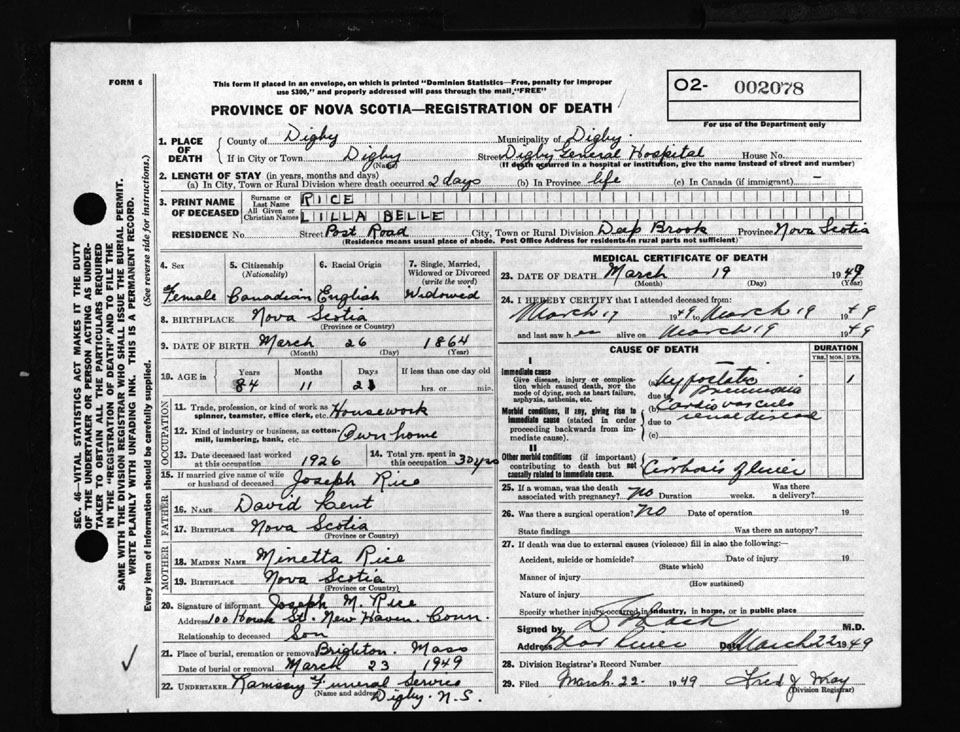 FORM 6
This form if placed in an envelope, on which is printed "Dominion Statistics—Free, penalty for improper
use $300," and properly addressed will pass through the mail, "FREE"
PROVINCE OF NOVA SCOTIA—REGISTRATION OF DEATH
O2- 002078
For use of the Department only
SEC. 46—VITAL STATISTICS ACT MAKES IT THE DUTY
OF THE UNDERTAKER OR PERSON ACTING AS UNDER-
TAKER TO OBTAIN ALL THE PARTICULARS REQUIRED
IN THE "REGISTRATION OF DEATH" AND TO FILE THE
SAME WITH THE DIVISION REGISTRAR WHO SHALL ISSUE THE BURIAL PERMIT.
WRITE PLAINLY WITH UNFADING INK. THIS IS A PERMANENT RECORD.
Every item of information should be carefully supplied. (See reverse side for instructions.)
1. PLACE OF DEATH
County of Digby Municipality of Digby.
If in City or Town Digby Street Digby General Hospital House No.
(Name) (If death occurred in a hospital or institution, give the name instead of street and number)
2. LENGTH OF STAY (in years, months and days)
(a) In City, Town or Rural Division where death occurred 2 days (b) In Province life (c) In Canada (if immigrant) —
3. PRINT NAME OF DECEASED
Surname or Last Name RICE
All Given or Christian Names LILLA BELLE
RESIDENCE No. Street Post Road City, Town or Rural Division Deep Brook Province Nova Scotia
(Residence means usual place of abode. Post Office Address for residents in rural parts not sufficient)
4. Sex 5. Citizenship (Nationality) 6. Racial Origin 7. Single, Married, Widowed or Divorced (write the word)
Female Canadian English Widowed
8. BIRTHPLACE Nova Scotia
(Province or Country)
9. DATE OF BIRTH March 26 1864
(Month) (Day) (Year)
10. AGE in Years Months Days If less than one day old
84 11 hrs. or min.
OCCUPATION
11. Trade, profession, or kind of work as
spinner, teamster, office clerk, etc. Housework
12. Kind of industry or business, as cotton-
mill, lumbering, bank, etc. Own home
13. Date deceased last worked
at this occupation 1926
14. Total yrs. spent in
this occupation 30 yrs
15. If married give name of wife
or husband of deceased Joseph Rice
FATHER
16. NAME David
17. BIRTHPLACE Nova Scotia
(Province or Country)
MOTHER
18. MAIDEN NAME Minetta Rice
19. BIRTHPLACE Nova Scotia
(Province or Country)
20. Signature of informant Joseph M. Rice
Address 100 Howe St. New Haven. Conn.
Relationship to deceased Son
21. Place of burial, cremation or removal Brighton. Mass
Date of burial or removal March 23 1949
22. UNDERTAKER Ramsay Funeral Service
(Name and address) Digby. N.S.
MEDICAL CERTIFICATE OF DEATH
23. DATE OF DEATH March 19 1949
(Month) (Day) (Year)
24. I HEREBY CERTIFY that I attended deceased from:
March 17 1949 to March 19 1949
and last saw her alive on March 19 1949
CAUSE OF DEATH DURATION
YRS. MOS. DYS.
I
Immediate cause
Give disease, injury or complica-
tion which caused death, NOT the
mode of dying, such as heart failure,
asphyxia, asthenia, etc.
(a) hypostatic pneumonia 1
due to
Morbid conditions, if any, giving rise to
immediate cause (stated in order
proceeding backwards from im-
mediate cause).
(b) Cardio vascular renal disease
due to
(c)
II
Other morbid conditions (if important)
contributing to death but not
causally related to immediate cause.
Cirrhosis of liver
25. If a woman, was the death
associated with pregnancy? no Duration weeks. Was there a delivery?
26. Was there a surgical operation? no Date of operation 19
State findings Was there an autopsy?
27. If death was due to external causes (violence) fill in also the following:—
Accident, suicide or homicide? Date of injury 19
(State which)
Manner of injury
(How sustained)
Nature of injury
Specify whether injury occurred in industry, in home, or in public place
Signed by M.D.
Address Bear River Date March 22 1949
28. Division Registrar's Record Number
29. Filed March. 22. 1949 Fred J May
(Division Registrar)